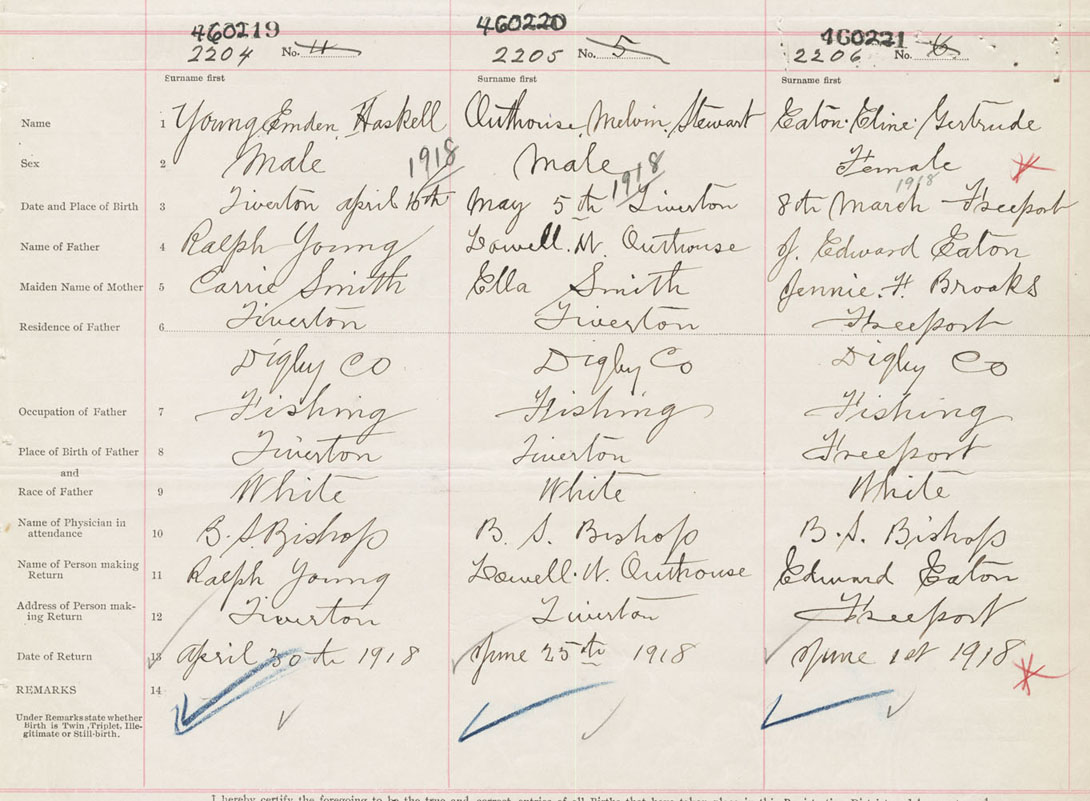 460219 460220 460221
2204 No. 11 2205 No. 5 2206 No. 6
Surname first Surname first Surname first
Name 1 Young Emden Haskell Outhouse, Melvin, Stewart Eaton. Eline. Gertrude
Sex 2 Male Male Female
1918 1918 1918
Date and Place of Birth 3 Tiverton april 16th May 5th Tiverton 8th March Freeport
Name of Father 4 Ralph Young Lowell. W. Outhouse J. Edward Eaton
Maiden Name of Mother 5 Carrie Smith Ella Smith Jennie. H. Brooks
Residence of Father 6 Tiverton Tiverton Freeport
Digby Co Digby Co Digby Co
Occupation of Father 7 Fishing Fishing Fishing
Place of Birth of Father 8 Tiverton Tiverton Freeport
and
Race of Father 9 White White White
Name of Physician in
attendance 10 B. S. Bishop B. S. Bishop B. S. Bishop
Name of Person making
Return 11 Ralph Young Lowell. W. Outhouse Edward Eaton
Address of Person mak-
ing Return 12 Tiverton Tiverton Freeport
Date of Return 13 april 30th 1918 June 25th 1918 June 1st 1918
REMARKS 14
Under Remarks state whether
Birth is Twin, Triplet, Ille-
gitimate or Still-birth.
I hereby certify the foregoing to be the true and correct entries of all Births that have taken place in this Registration District